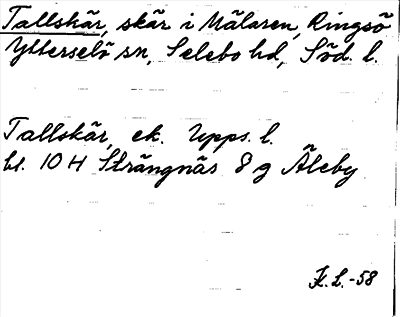 Tallskär, skär i Mälaren, Ringsö
Ytterselö sn, Selebo hd, Söd. l.
Tallskär, ek. Upps. l.
bl. 10 H Strängnäs 8 g Äleby
K.L.-58